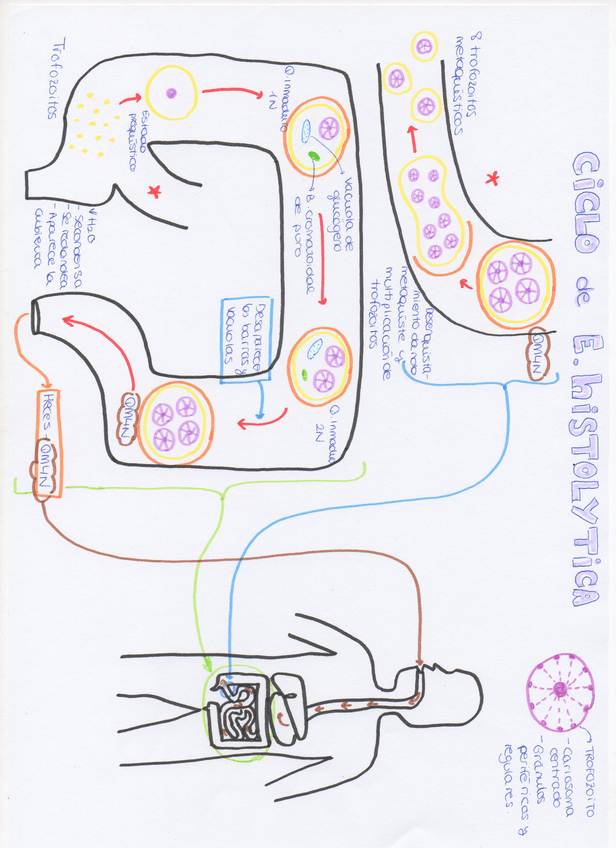 CICLO de E. histolytica
TROFOZOITO
- Cariosoma
centrado
- Gránulos
periféricos y
regulares.
8 trofozoitos
metaquísticos
QM4N
Desenquista-
miento dando
metaquiste y
multiplicación de
trofozoitos
Q. inmaduro
1N
Vacuola de
glucógeno
B. cromatoidae
de puro
Q. inmaduro
2N
Desaparece
barras y
vacuolas
QM4N
Estado
prequístico
Trofozoitos
↓ H2O
- Se condensa
- Se redondea
- Aparece la
cubierta
Heces
QM4N